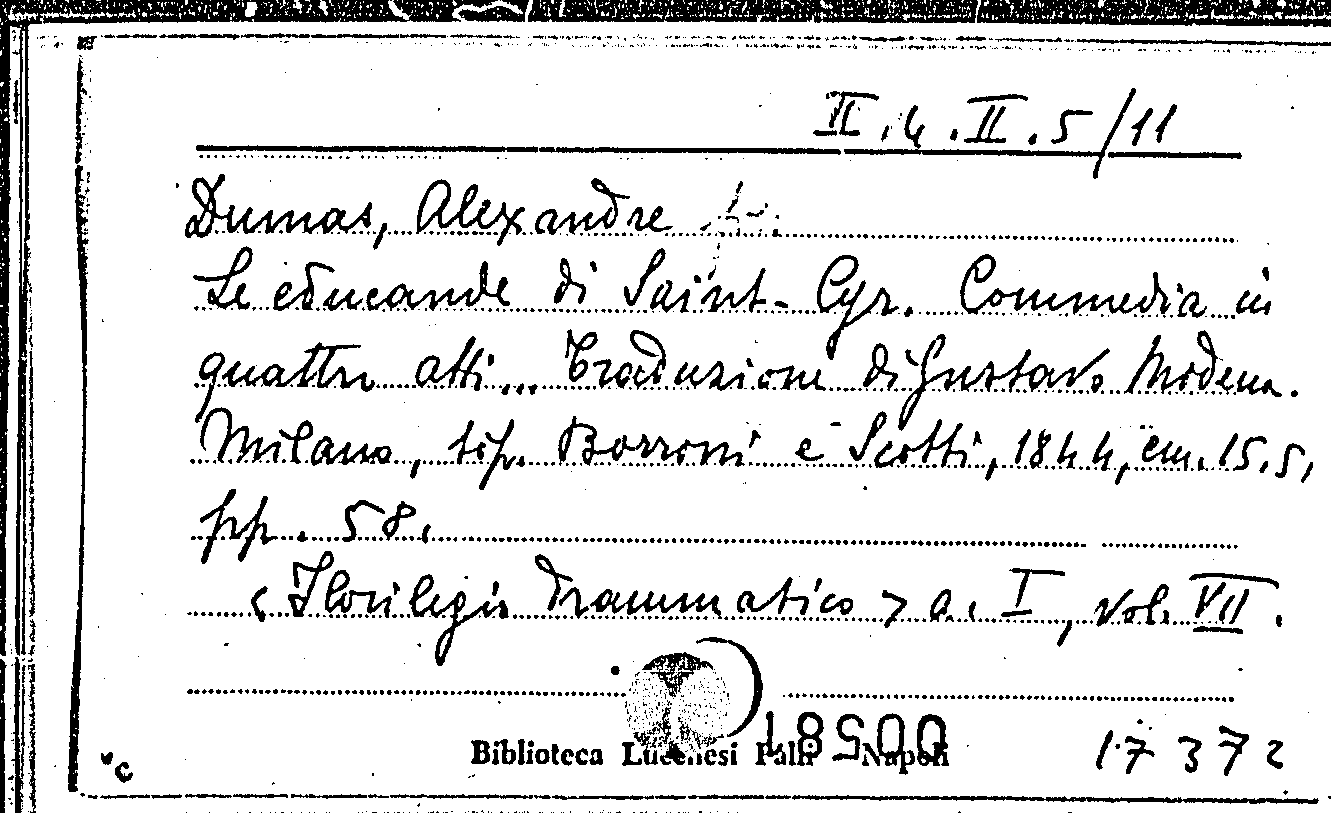 VI.4.II.5/11
Dumas, Alexandre
Le educande di Saint-Cyr. Commedia in
quattro atti... Traduzione di Gustavo Modena.
Milano, tip. Borroni e Scotti, 1844, cm. 15.5,
pp. 58.
<Florilegio drammatico> a. I, vol. VII.
Biblioteca Lucchesi Palli Napoli
17372